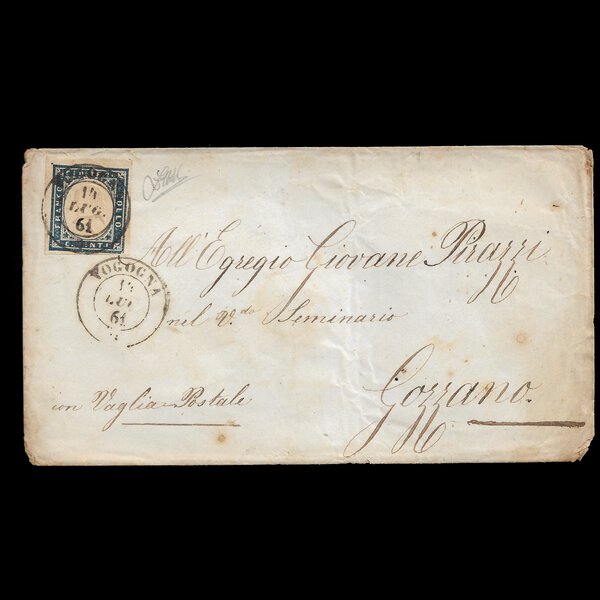 FRANCO BOLLO
C. VENTI
14
LUG.
61
VOGOGNA
14
LUG
61
All'Egregio Giovane Pirazzi
nel V.do Seminario
con Vaglia Postale
Gozzano.